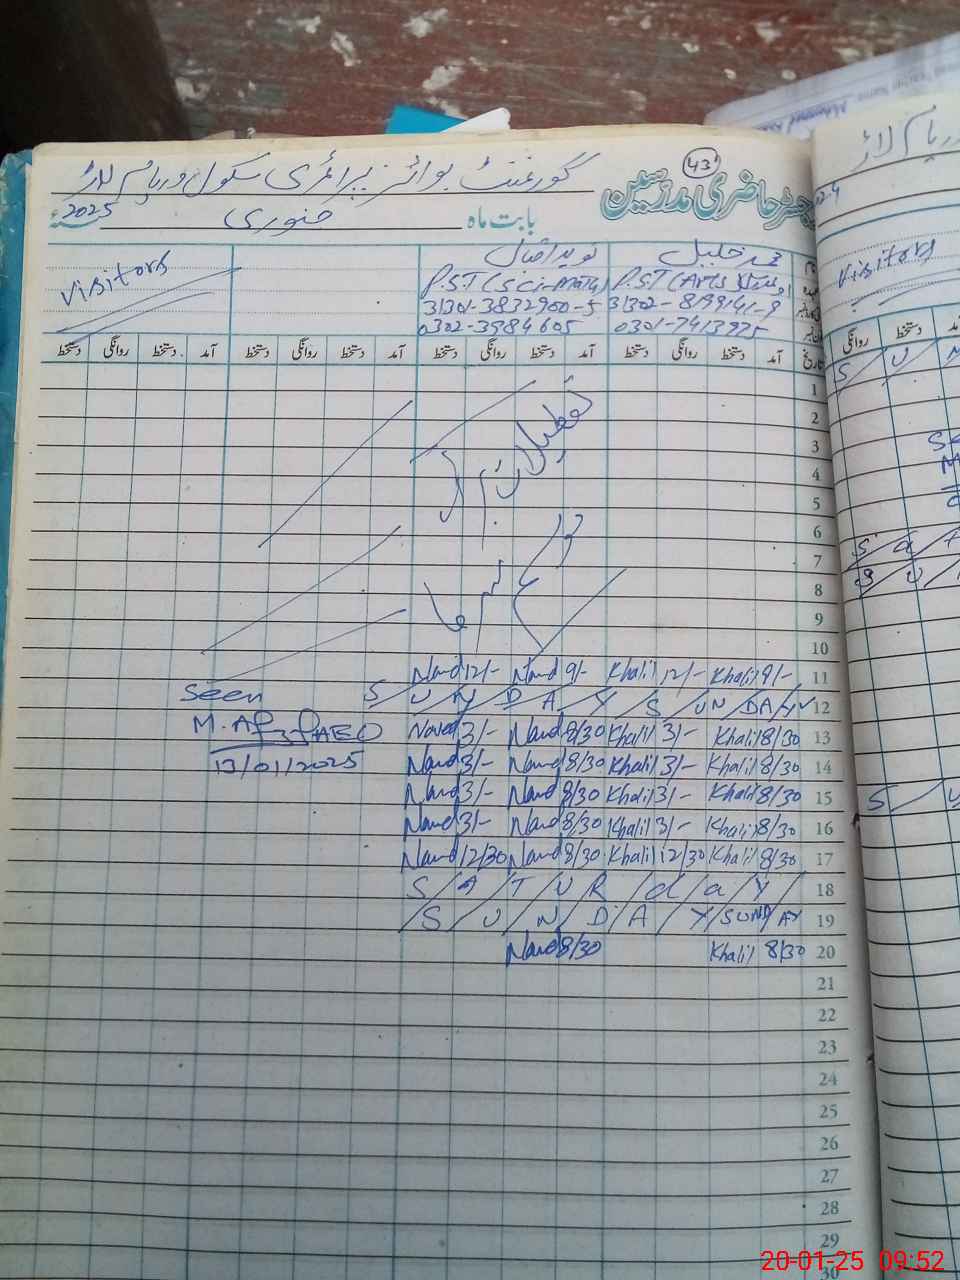 43
رجسٹر حاضری مدرسین
گورنمنٹ بوائز پرائمری سکول
بابت ماہ جنوری 2025
محمد خلیل نوید اقبال Visitors
P.S.T (Arts P.S.T (Sci-math)
31302-8199141-9 31301-3832900-5
0301-7413925 0302-3984605
تاریخ آمد دستخط روانگی دستخط آمد دستخط روانگی دستخط آمد دستخط روانگی دستخط آمد دستخط روانگی دستخط
1
2
3
4
5
6
7
8
9
10
موسم سرما
Navid 12/- Navid 9/- Khalil 12/- Khalil 9/- 11
Seen S U N D A Y S UN DAY 12
M. Afzal AEO Navid 3/- Navid 8/30 Khalil 3/- Khalil 8/30 13
13/01/2025 Navid 3/- Navid 8/30 Khalil 3/- Khalil 8/30 14
Navid 3/- Navid 8/30 Khalil 3/- Khalil 8/30 15
Navid 3/- Navid 8/30 Khalil 3/- Khalil 8/30 16
Navid 12/30 Navid 8/30 Khalil 12/30 Khalil 8/30 17
S A T U R d a Y 18
S U N D A Y SUNDAY 19
Navid 8/30 Khalil 8/30 20
21
22
23
24
25
26
27
28
29
30
Visitors
روانگی دستخط
S U
20-01-25 09:52